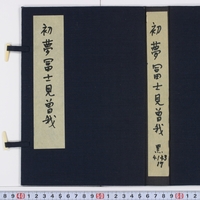 初夢冨士見曽我
初夢冨士見曽我
黒
4143
19